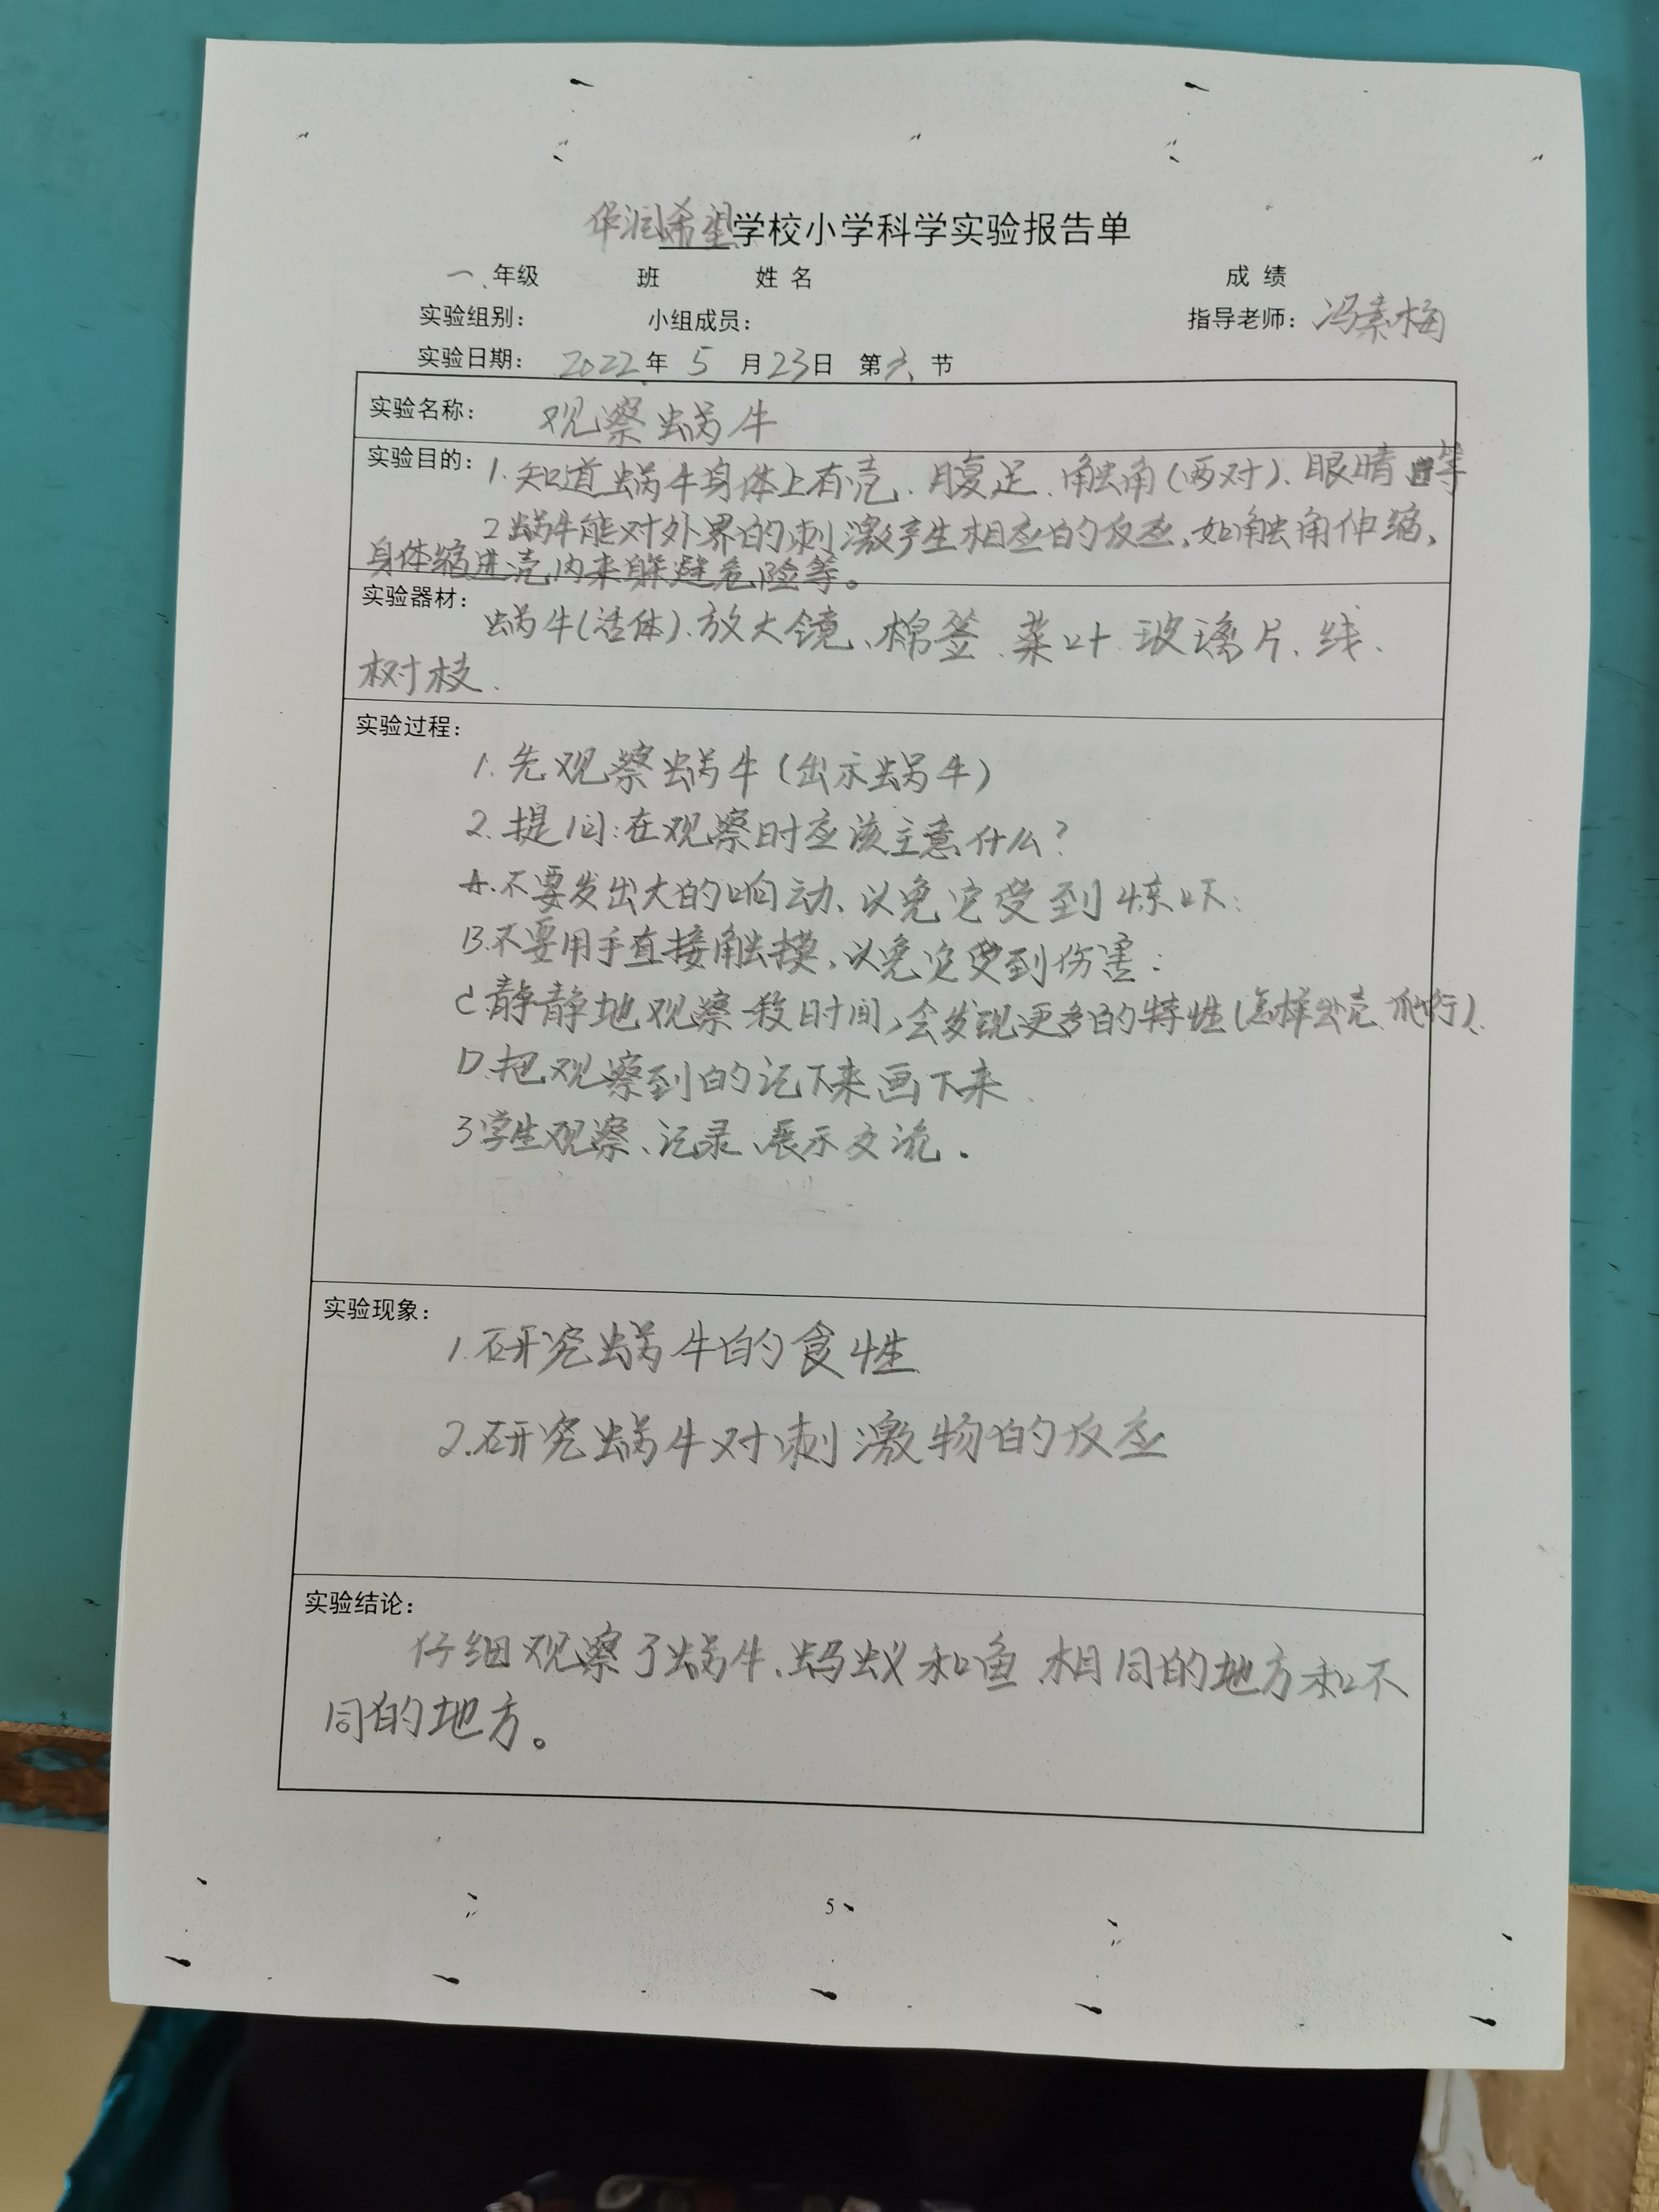 华润希望学校小学科学实验报告单
一、年级 班 姓名 成绩
实验组别： 小组成员： 指导老师：冯素梅
实验日期： 2022年 5 月23日 第六节
实验名称： 观察蜗牛
实验目的：1.知道蜗牛身体上有壳、腹足、触角(两对)、眼睛等
2蜗牛能对外界的刺激产生相应的反应,如触角伸缩,
身体缩进壳内来躲避危险等。
实验器材：
蜗牛(活体)、放大镜、棉签、菜叶、玻璃片、线、
树枝.
实验过程：
1.先观察蜗牛(出示蜗牛)
2.提问:在观察时应该主意什么?
A.不要发出大的响动、以免它受到惊吓:
B.不要用手直接触摸,以免它受到伤害:
C.静静地观察一段时间,会发现更多的特性(怎样出壳、爬行).
D.把观察到的记下来画下来
3学生观察、记录、展示交流.
实验现象：
1.研究蜗牛的食性
2.研究蜗牛对刺激物的反应
实验结论：
仔细观察了蜗牛、蚂蚁和鱼相同的地方和不
同的地方。
5